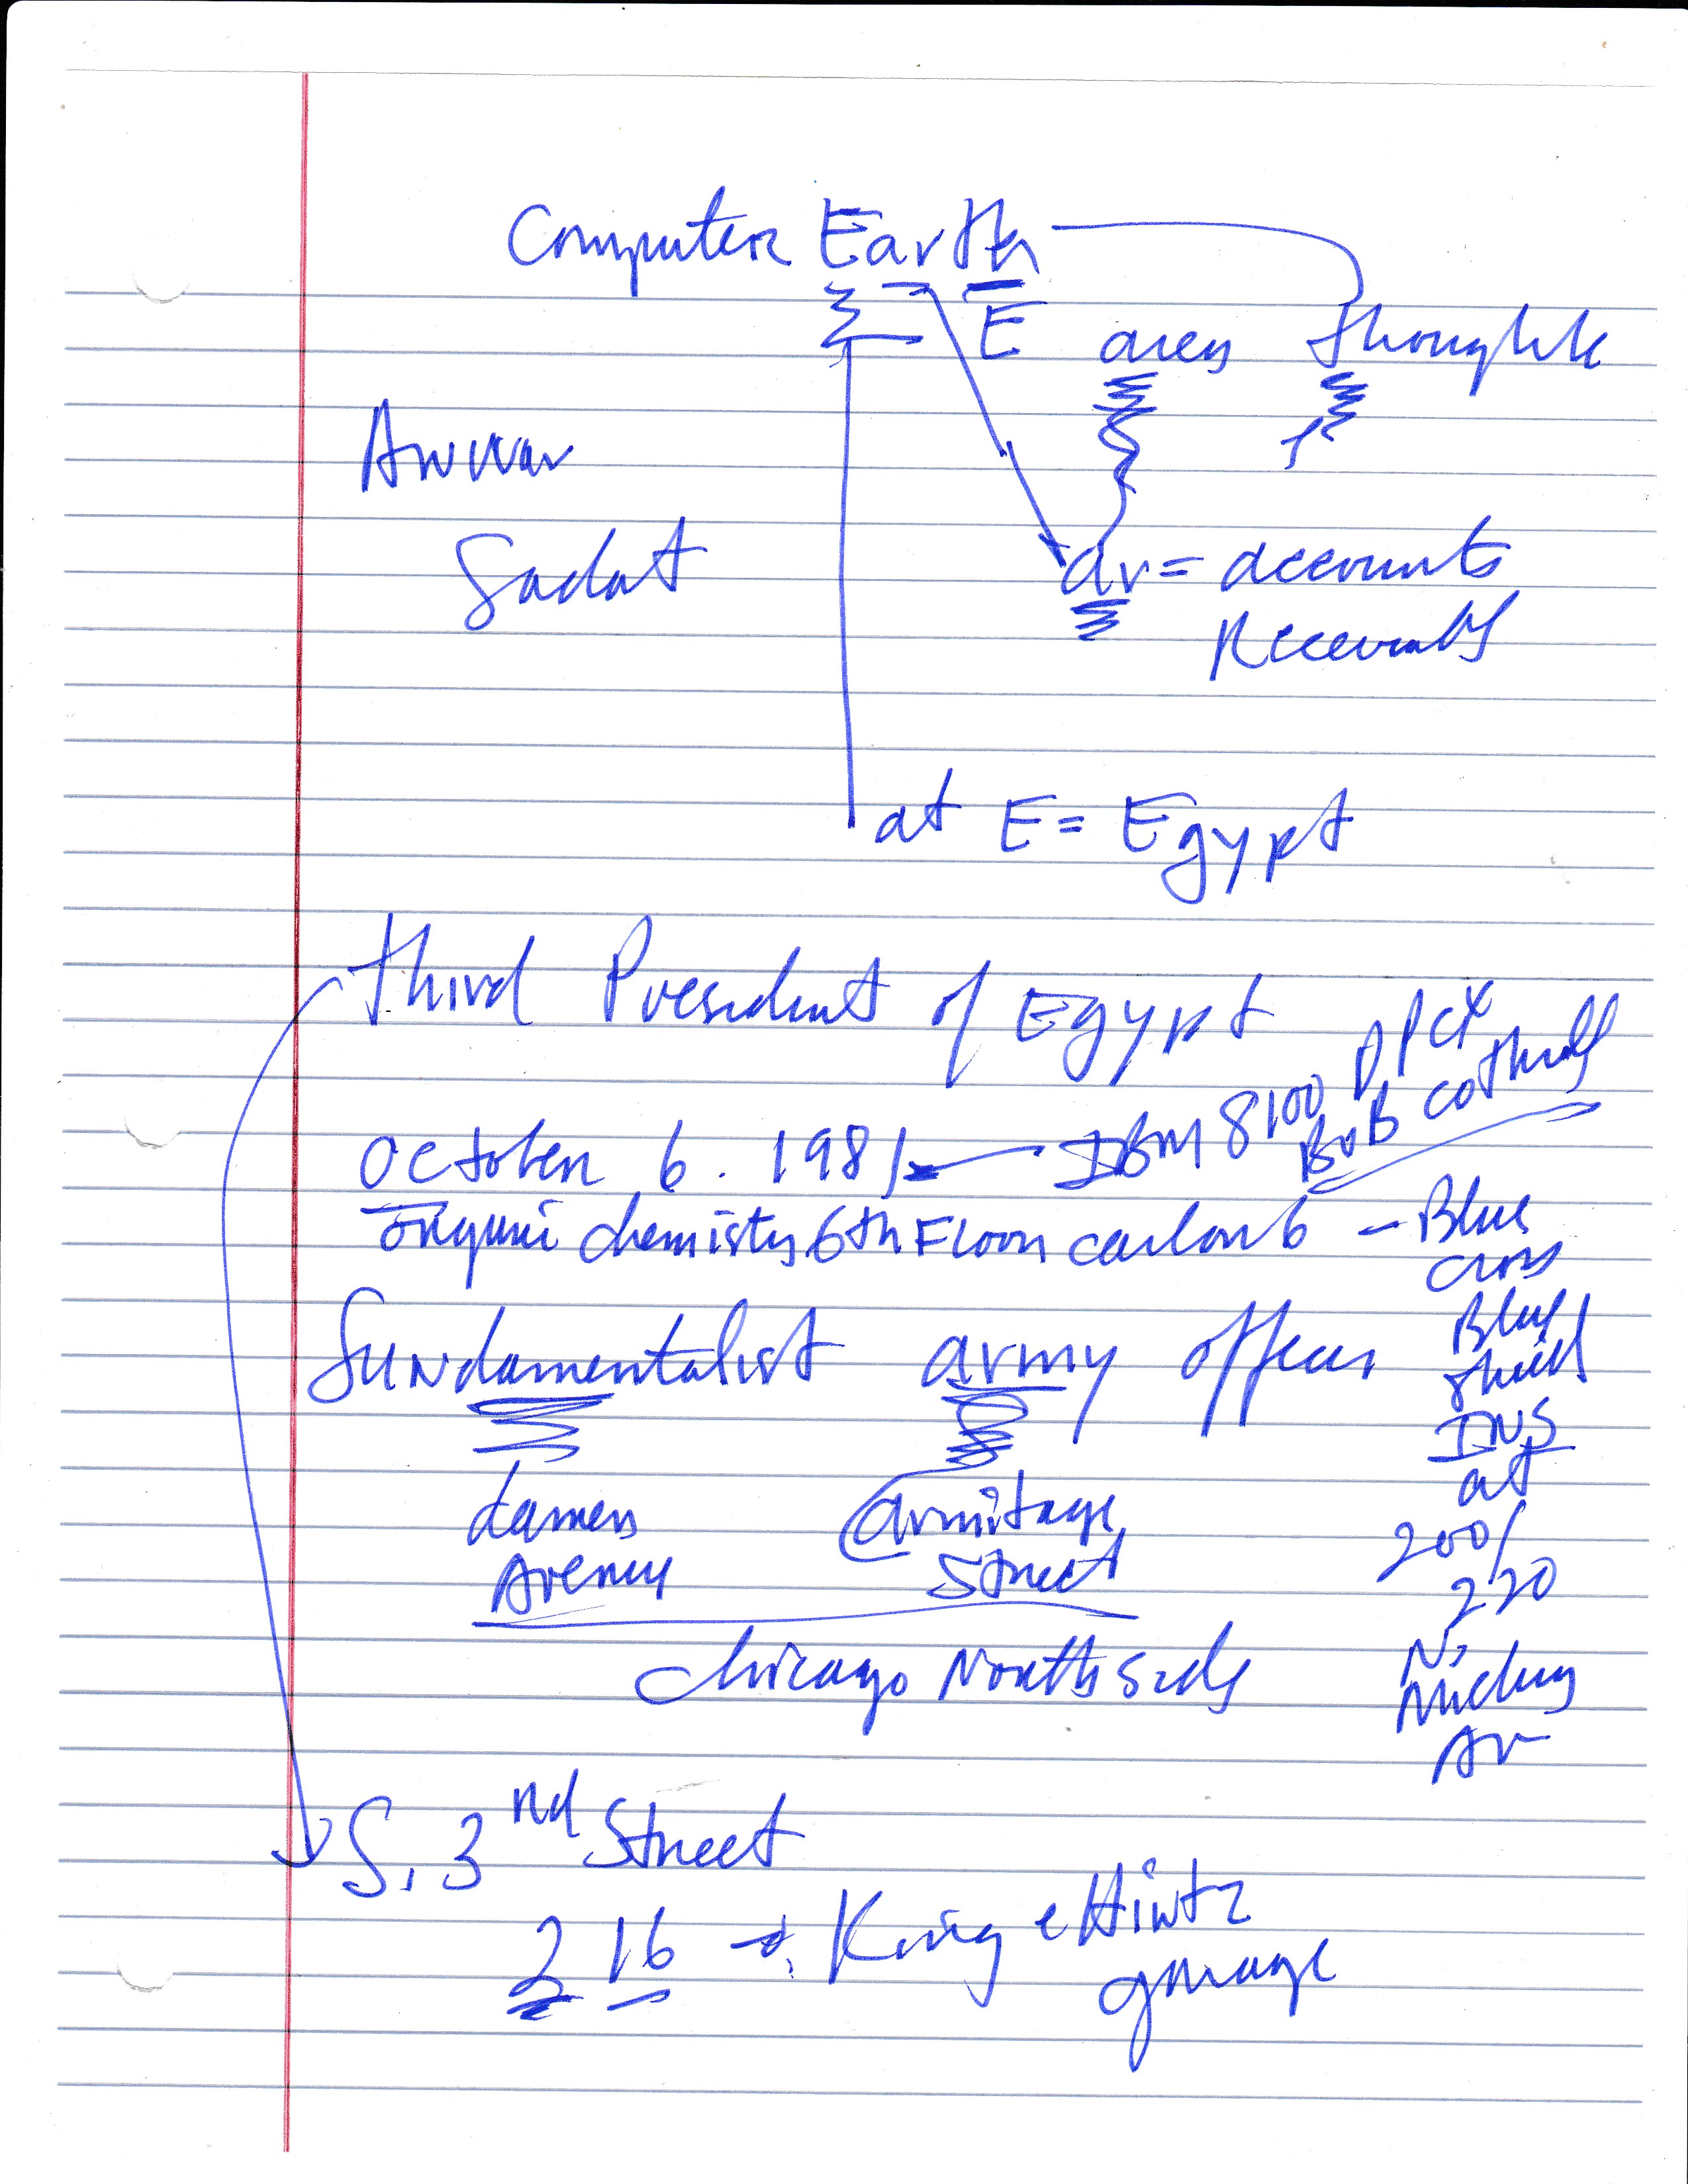 Computer Earth
E area thoughts
Anwar
Sadat
ar = accounts
Receivable
at E = Egypt
third President of Egypt
October 6. 1981 IBM 8100 DPCX
Bob Cothroll
organic chemistry 6th Floor carbon 6 - Blue
Cross
fundamentalist army officers
Blue
Shield
INS
at
damen armitage
Avenue Street
200/
220
Chicago North Side
N.
Av
S. 3nd Street
216 → King & Hintz
garage